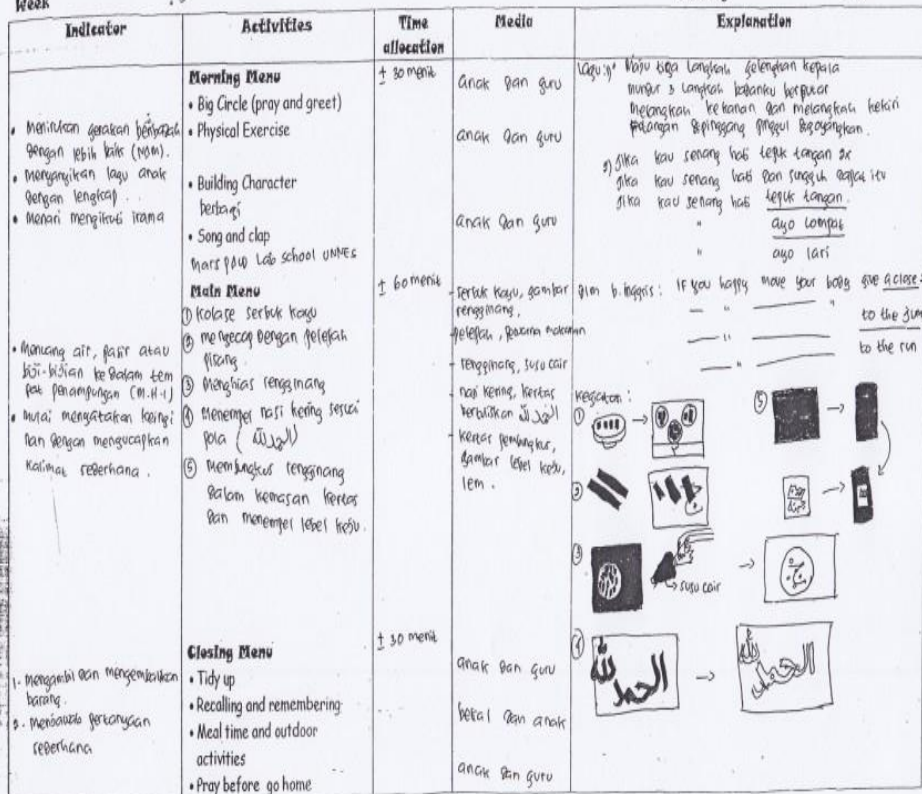 Week
Indicator
Activities
Time
allocation
Media
Explanation
• Menirukan gerakan
dengan lebih baik (NAM).
• Menyanyikan lagu anak
dengan lengkap . .
• Menari mengikuti irama
Morning Menu
• Big Circle (pray and greet)
• Physical Exercise
• Building Character
berbagi
• Song and clap
Mars Lab school UNNES
± 30 menit
anak dan guru
anak dan guru
anak dan guru
Lagu: 1) Maju tiga langkah gelengkan kepala
mundur 3 langkah badanku berputar
Melangkah ke kanan dan melangkah kekiri
dipinggang pinggul digoyangkan.
2) Jika kau senang hati tepuk tangan 2x
Jika kau senang hati dan sungguh itu
Jika kau senang hati tepuk tangan.
" ayo lompat
" ayo lari
• Menuang air, pasir atau
biji-bijian kedalam tem
pat penampungan (M.H-1)
• mulai mengatakan keingi
nan dengan mengucapkan
kalimat sederhana .
Main Menu
① kolase serbuk kayu
② mengecap dengan pelepah
pisang .
③ Menghias rengginang
④ Menempel nasi kering sesuai
pola ( الحمد لله )
⑤ Membungkus rengginang
dalam kemasan kertas
dan menempel lebel keju .
± 60 menit
- serbuk kayu, gambar
rengginang,
pelepah , makanan
- rengginang, susu cair
- nasi kering, kertas
bertuliskan الحمد لله
- kertas pembungkus,
gambar lebel keju,
lem .
b.inggris : If you happy move your body give a close
— " — " to the jum
— " — to the run
— " —
kegiatan :
①
②
③
→ susu cair
④
الحمد لله
→
الحمد لله
⑤
1. mengambil dan mengembalikan
barang .
2. menjawab pertanyaan
sederhana
Closing Menu
• Tidy up
• Recalling and remembering
• Meal time and outdoor
activities
• Pray before go home
± 30 menit
anak dan guru
bekal dan anak
anak dan guru